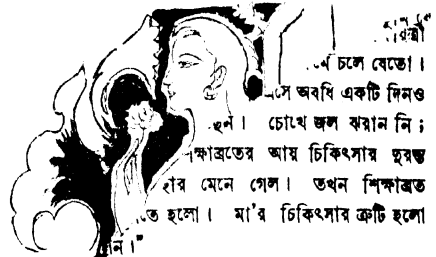 চলে যেতো।
অবধি একটি দিনও
চোখে জল ঝরান নি ;
আয় চিকিৎসার দুরন্ত
মেনে গেল। তখন শিক্ষাব্রত
হলো। মা'র চিকিৎসার ত্রুটি হলো